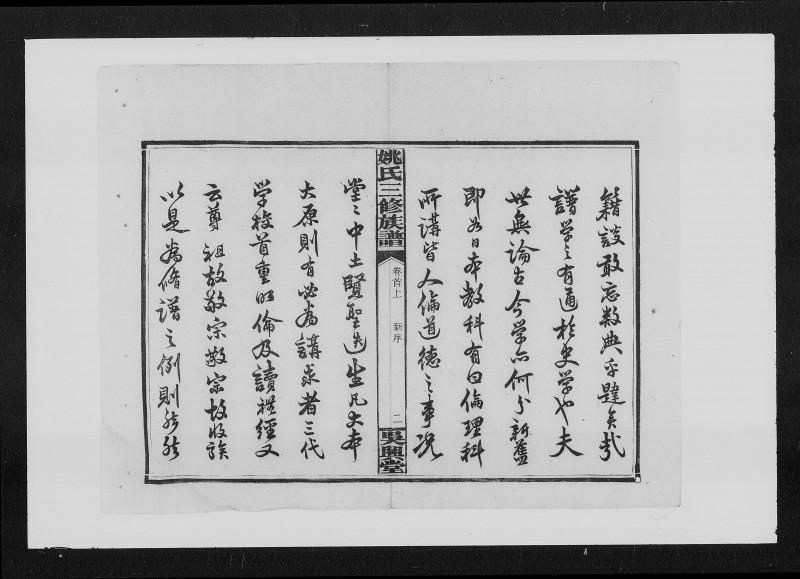 籍談敢忘数典乎韙矣哉
譜学之有通於史学也夫
世無論古今学亦何分新舊
即如日本教科有曰倫理科
所講皆人倫道德之事况
姚氏三修族譜
卷首上
新序
二
吳興堂
堂〻中土賢聖迭生凡大本
大原則有必為講求者三代
学校首重明倫及讀禮經又
云尊祖故敬宗敬宗故收族
以是為脩譜之例則